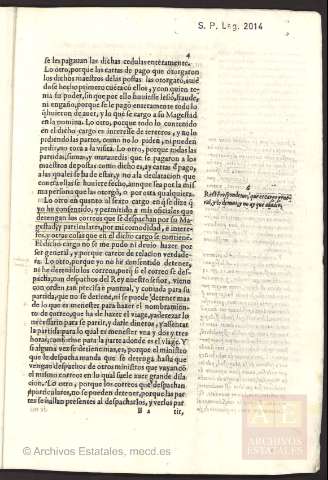 S. P. Leg. 2014
4
se les pagauan las dichas cedulas enteramente.
Lo otro, porque las cartas de pago que otorgaron
los dichos maestros de las postas las otorgarō, auiē
do se hecho primero cuēta cō ellos, y con quien te
nia su poder, sin que por ello houiesse lesiō, fraude,
ni engaño, porque se le pagò enteramente todo lo
q̄ huuieron de auer, y lo q̄ se cargo a su Magestad
en la nomina. Lo otro, porque todo lo contenido
en el dicho cargo es interesse de terceros, y no lo
pidiendo las partes, como no lo pidē, ni pueden
pedir, no toca a la visita. Lo otro, porque todas las
partidas, suma, y marauedis que se pagaron a los
dichos correos, como dicho es, ay cartas d̄ pago,
a las quales se ha de estar, y no a la declaracion que
contra ellas se houiere fecho, aunque sea por la mis
ma persona que las otorgó, o por otra qualquiera.
Lo otro en quanto al sexto cargo en q̄ se dize q̄
yo he consentido, y permitido a mis oficiales que
detengan los correos que se despachan por su Ma
gestad, y particulares, por mi comodidad, e interes-
se, y otras cosas que en el dicho cargo se contiene.
El dicho cargo no se me pudo ni deuio hazer por
ser general, y porque carece de relacion verdade-
ra. Lo otro, porque yo no he consentido detener,
ni he detenido los correos, porq̄ si el correo se de-
spacha, por despachos del Rey nuestro señor, viene
con orden tan precisa e puntual, y contada para su
partida, que no se detiene, ni se puede detener mas
de lo que es menester para hazer el nombramiēn
to de correo, que ha de hazer el viage, y aderezar lo
necessario para se partir, y darle dineros, y assentar
la partida para lo qual es menester vna y dos y tres
horas, conforme para la parte adonde es el viage. Y
si alguna vez se detienen mas, es, porque el ministro
que le despacha manda que se detenga hasta que
vengan despachos de otros ministros que vayan cō
el mismo correo en lo qual suele auer grande dila
cion. Lo otro, porque los correos que despachan
particulares, no se pueden detener, porque las par
tes se hallan presentes al despacharlos, y verlos par
B 2 tir,
6
© Archivos Estatales, mecd.es
AE
ARCHIVOS
ESTATALES